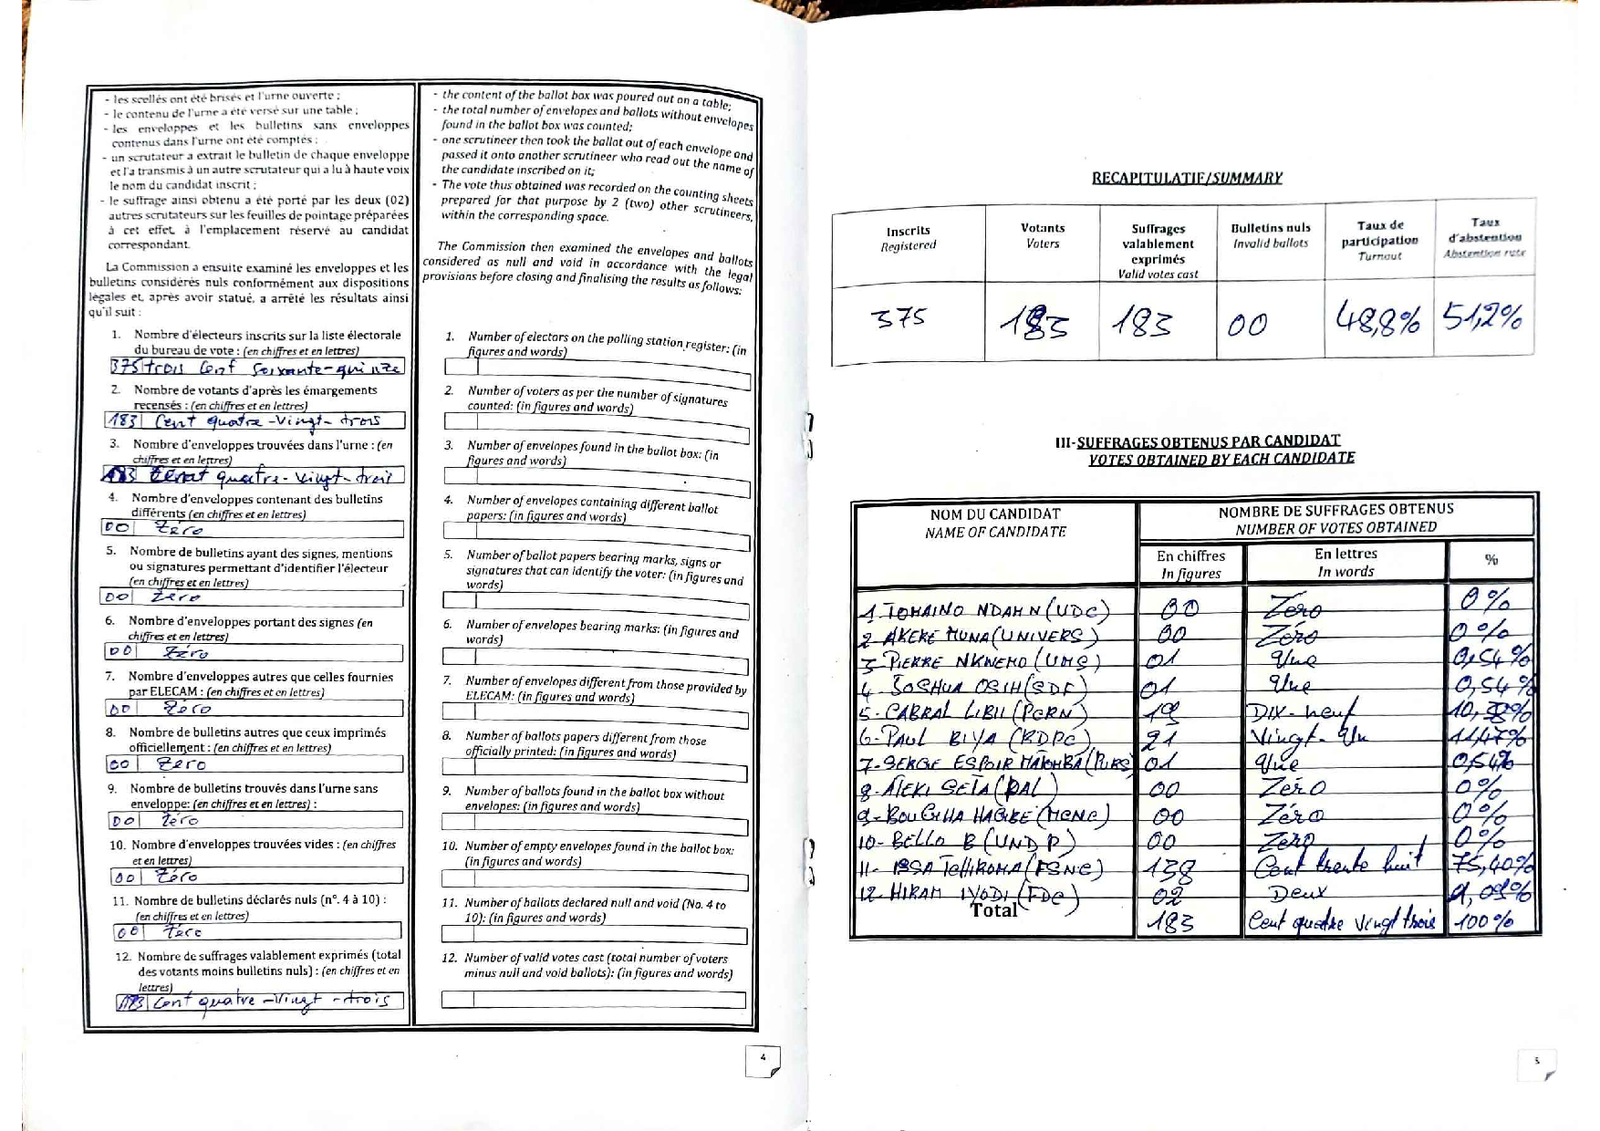 - les scellés ont été brisés et l'urne ouverte ;
- le contenu de l'urne a été versé sur une table ;
- les enveloppes et les bulletins sans enveloppes
contenus dans l'urne ont été comptés ;
- un scrutateur a extrait le bulletin de chaque enveloppe
et l'a transmis à un autre scrutateur qui a lu à haute voix
le nom du candidat inscrit ;
- le suffrage ainsi obtenu a été porté par les deux (02)
autres scrutateurs sur les feuilles de pointage préparées
à cet effet, à l'emplacement réservé au candidat
correspondant.
La Commission a ensuite examiné les enveloppes et les
bulletins considérés nuls conformément aux dispositions
légales et, après avoir statué, a arrêté les résultats ainsi
qu'il suit :
1. Nombre d'électeurs inscrits sur la liste électorale
du bureau de vote : (en chiffres et en lettres)
375 trois Cent Soixante-quinze
2. Nombre de votants d'après les émargements
recensés : (en chiffres et en lettres)
183 Cent quatre-Vingt-trois
3. Nombre d'enveloppes trouvées dans l'urne : (en
chiffres et en lettres)
183 Cent quatre-Vingt-trois
4. Nombre d'enveloppes contenant des bulletins
différents (en chiffres et en lettres)
00 Zéro
5. Nombre de bulletins ayant des signes, mentions
ou signatures permettant d'identifier l'électeur
(en chiffres et en lettres)
00 Zéro
6. Nombre d'enveloppes portant des signes (en
chiffres et en lettres)
00 Zéro
7. Nombre d'enveloppes autres que celles fournies
par ELECAM : (en chiffres et en lettres)
00 Zéro
8. Nombre de bulletins autres que ceux imprimés
officiellement : (en chiffres et en lettres)
00 Zéro
9. Nombre de bulletins trouvés dans l'urne sans
enveloppe: (en chiffres et en lettres) :
00 Zéro
10. Nombre d'enveloppes trouvées vides : (en chiffres
et en lettres)
00 Zéro
11. Nombre de bulletins déclarés nuls (n°. 4 à 10) :
(en chiffres et en lettres)
00 Zéro
12. Nombre de suffrages valablement exprimés (total
des votants moins bulletins nuls) : (en chiffres et en
lettres)
183 Cent quatre-Vingt-trois
- the content of the ballot box was poured out on a table;
- the total number of envelopes and ballots without envelopes
found in the ballot box was counted;
- one scrutineer then took the ballot out of each envelope and
passed it onto another scrutineer who read out the name of
the candidate inscribed on it;
- The vote thus obtained was recorded on the counting sheets
prepared for that purpose by 2 (two) other scrutineers,
within the corresponding space.
The Commission then examined the envelopes and ballots
considered as null and void in accordance with the legal
provisions before closing and finalising the results as follows:
1. Number of electors on the polling station register: (in
figures and words)
2. Number of voters as per the number of signatures
counted: (in figures and words)
3. Number of envelopes found in the ballot box: (in
figures and words)
4. Number of envelopes containing different ballot
papers: (in figures and words)
5. Number of ballot papers bearing marks, signs or
signatures that can identify the voter: (in figures and
words)
6. Number of envelopes bearing marks: (in figures and
words)
7. Number of envelopes different from those provided by
ELECAM: (in figures and words)
8. Number of ballots papers different from those
officially printed: (in figures and words)
9. Number of ballots found in the ballot box without
envelopes: (in figures and words)
10. Number of empty envelopes found in the ballot box:
(in figures and words)
11. Number of ballots declared null and void (No. 4 to
10): (in figures and words)
12. Number of valid votes cast (total number of voters
minus null and void ballots): (in figures and words)
4
RECAPITULATIF/SUMMARY
Inscrits Registered | Votants Voters | Suffrages valablement exprimés Valid votes cast | Bulletins nuls Invalid ballots | Taux de participation Turnout | Taux d'abstention Abstention rate
375 | 183 | 183 | 00 | 48,8% | 51,2%
III-SUFFRAGES OBTENUS PAR CANDIDAT
VOTES OBTAINED BY EACH CANDIDATE
NOM DU CANDIDAT NAME OF CANDIDATE | NOMBRE DE SUFFRAGES OBTENUS NUMBER OF VOTES OBTAINED
En chiffres In figures | En lettres In words | %
1- TOMAINO NDAM N (UDC) 00 Zéro 0%
2 AKERE MUNA (UNIVERS) 00 Zéro 0%
3- PIERRE KWEMO (UMS) 01 Une 0,54%
4- JOSHUA OSIH (SDF) 01 Une 0,54%
5- CABRAL LIBII (PCRN) 19 DIX-neuf 10,38%
6- PAUL BIYA (RDPC) 21 Vingt-Un 11,47%
7- SERGE ESPOIR MATOMBA (PURS) 01 Une 0,54%
8- ATEKI SETA (PAL) 00 Zéro 0%
9- BOUGIHA HAGBE (MCNC) 00 Zéro 0%
10- BELLO B (UNDP) 00 Zéro 0%
11- ISSA TCHIROMA (FSNC) 138 Cent trente huit 75,40%
12- HIRAM IYODI (FDC) 02 Deux 1,09%
Total 183 Cent quatre Vingt trois 100%
5